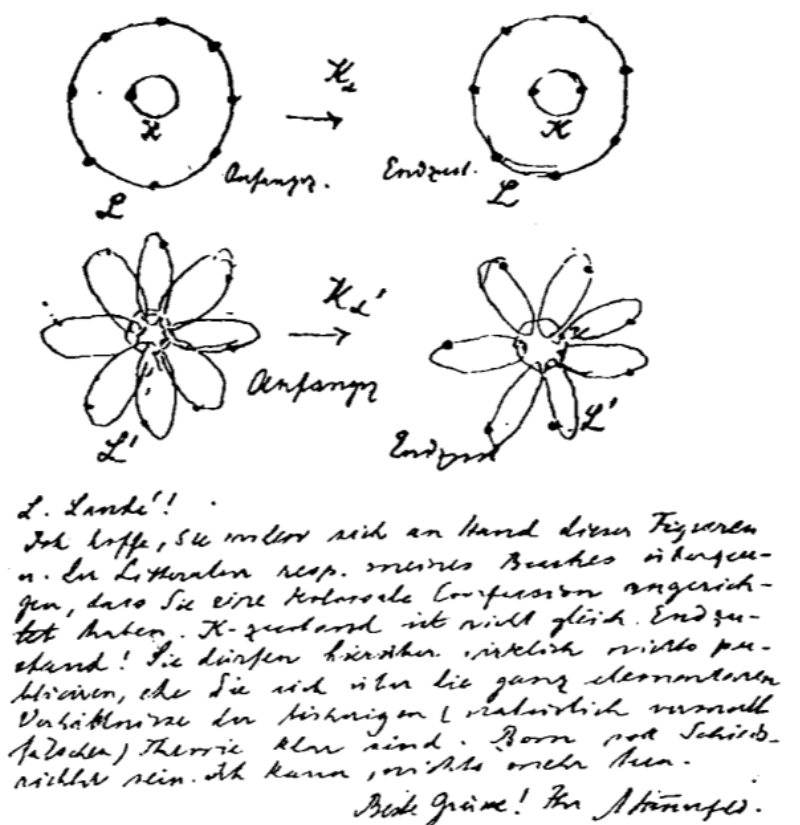 K K
K_α
Anfangsz. Endzust.
L L
K_α'
Anfangsz
L' L'
Endzust
L. Landé!
Ich hoffe, Sie wollen sich an Hand dieser Figuren
u. der Litteratur resp. meines Buches überzeu-
gen, dass Sie eine kolossale Confusion angerich-
tet haben. K-zustand ist nicht gleich Endzu-
stand! Sie dürfen hierüber wirklich nichts pu-
bliciren, ehe Sie sich über die ganz elementaren
Verhältnisse der bisherigen (natürlich
falschen) Theorie klar sind. Born soll Schieds-
richter sein. Ich kann nichts mehr tun.
Beste Grüsse! Ihr A Sommerfeld.